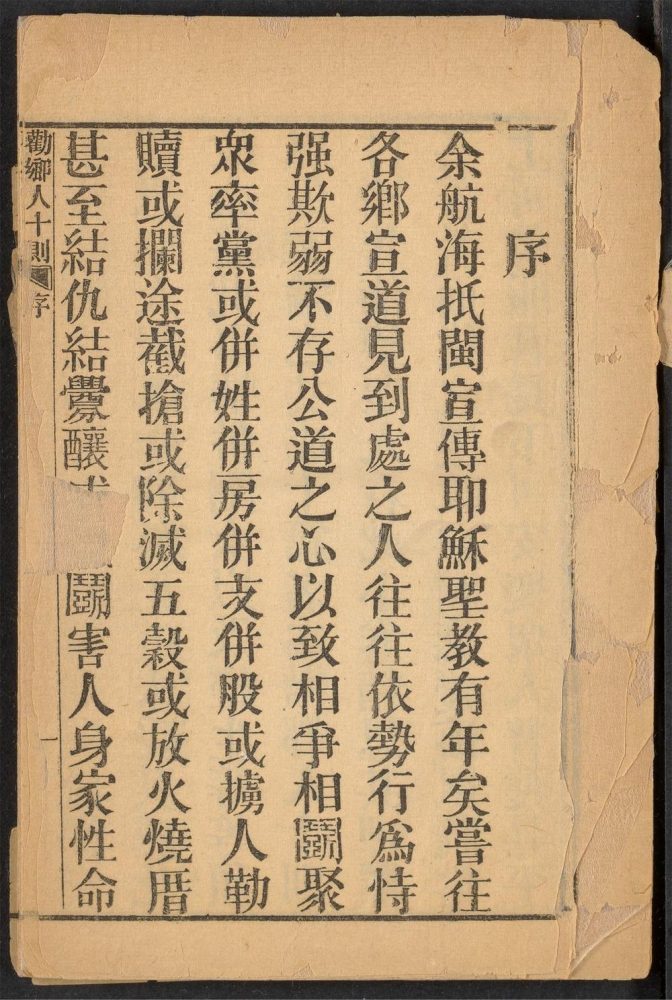 序
余航海抵閩宣傳耶穌聖教有年矣嘗往
各鄉宣道見到處之人往往依勢行爲恃
强欺弱不存公道之心以致相爭相鬭聚
衆率黨或併姓併房併支併股或擄人勒
贖或攔途截搶或除滅五穀或放火燒厝
甚至結仇結釁釀鬭害人身家性命
勸鄉人十則 序 一